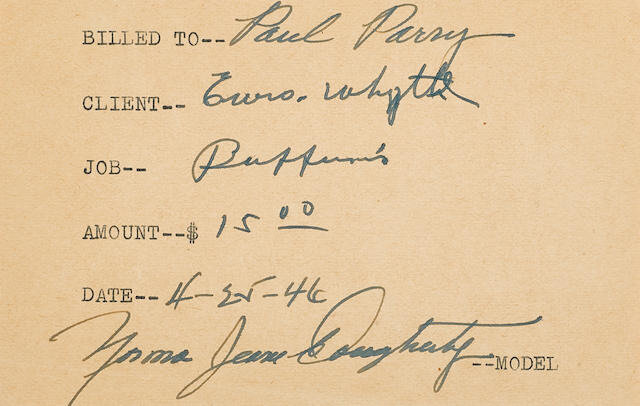 BILLED TO-- Paul Parry
CLIENT-- whytte
JOB-- Buffum's
AMOUNT--$ 15 00
DATE-- 4-25-46
Norma Jeane Dougherty --MODEL